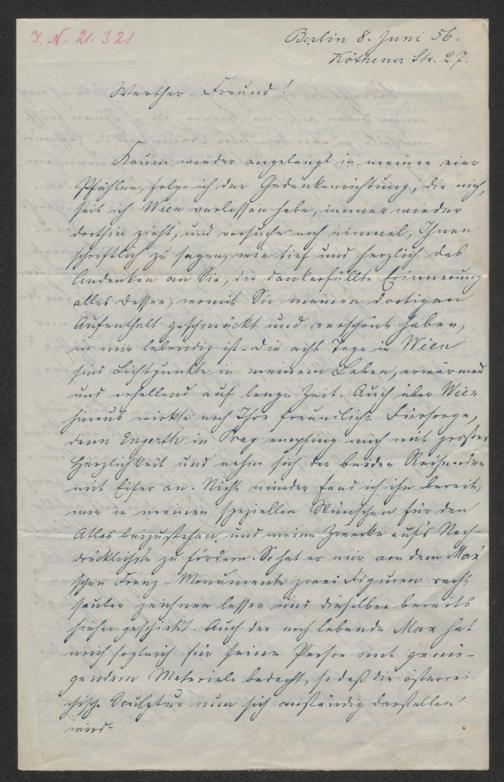 I. N. 21.321
Berlin 8. Juni 56.
Köthener Str. 27.
Werther Freund!
Kaum wieder angelangt in meinen vier
Pfählen, folge ich der Gedankenrichtung, die mich,
seit ich Wien verlassen habe, immer wieder
dorthin zieht, und versuche noch einmal, Ihnen
schriftlich zu sagen, wie tief und herzlich das
Andenken an Sie, die dankerfüllte Erinnerung
alles Dessen, womit Sie meinen dortigen
Aufenthalt geschmückt und verschönt haben,
in mir lebendig ist. Die acht Tage in Wien
sind Lichtpunkte in meinem Leben, erwärmend
und erhellend auf lange Zeit. Auch über Wien
hinaus wirkte noch Ihre freundliche Fürsorge,
denn Engerth in Prag empfing mich mit großer
Herzlichkeit und nahm sich der beiden Reisenden
mit Eifer an. Nicht minder fand ich ihn bereit,
mir in meinen speziellen Wünschen für den
Atlas beizustehen, und meine Zwecke aufs Nach-
drücklichste zu fördern. So hat er mir von dem Max
schen Franz-Monumente zwei Figuren recht
sauber zeichnen lassen und dieselben bereits
hieher geschickt. Auch der noch lebende Max hat
mich sogleich für seine Person mit genü-
gendem Materiale bedacht, so daß die österrei-
chische Sculptur nun sich anständig darstellen
wird.